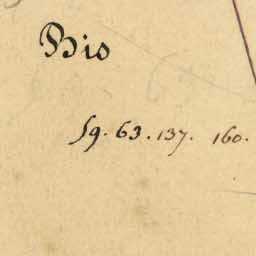 Bio
59. 63. 137. 160.